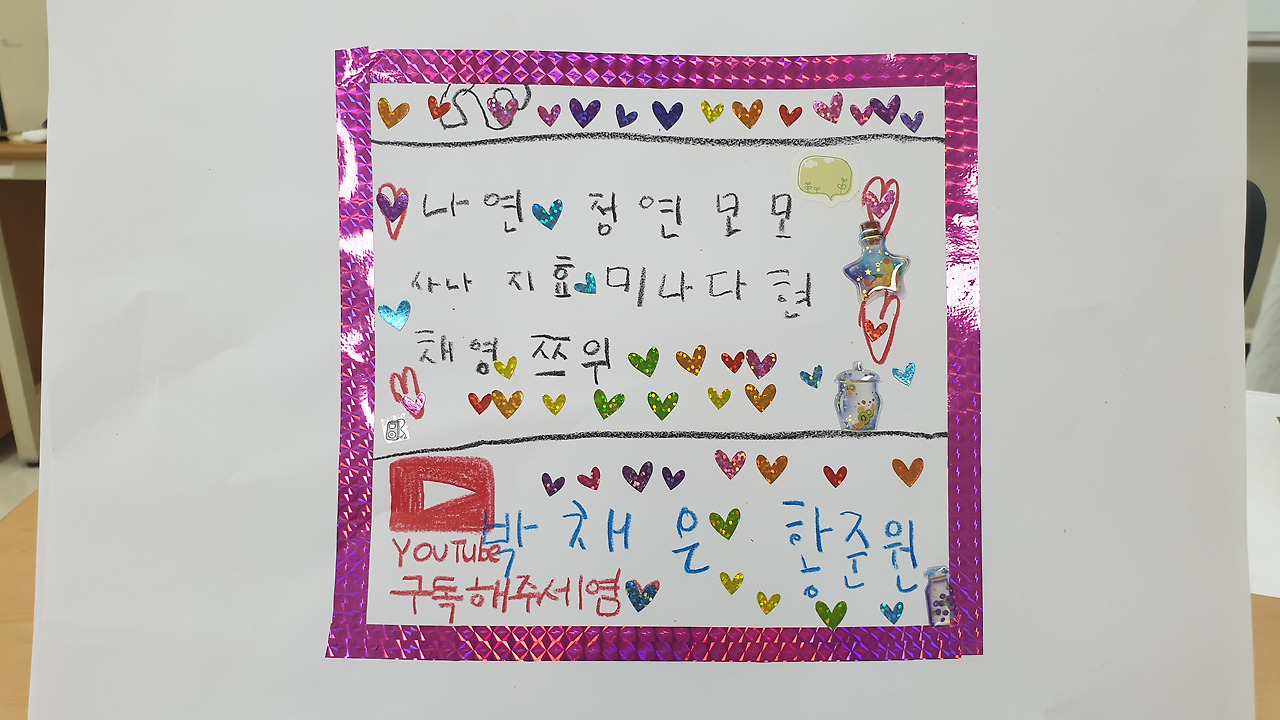 나연 정연 모모
사나 지효 미나 다현
채영 쯔위
박채은 황준원
YouTube
구독해주세염